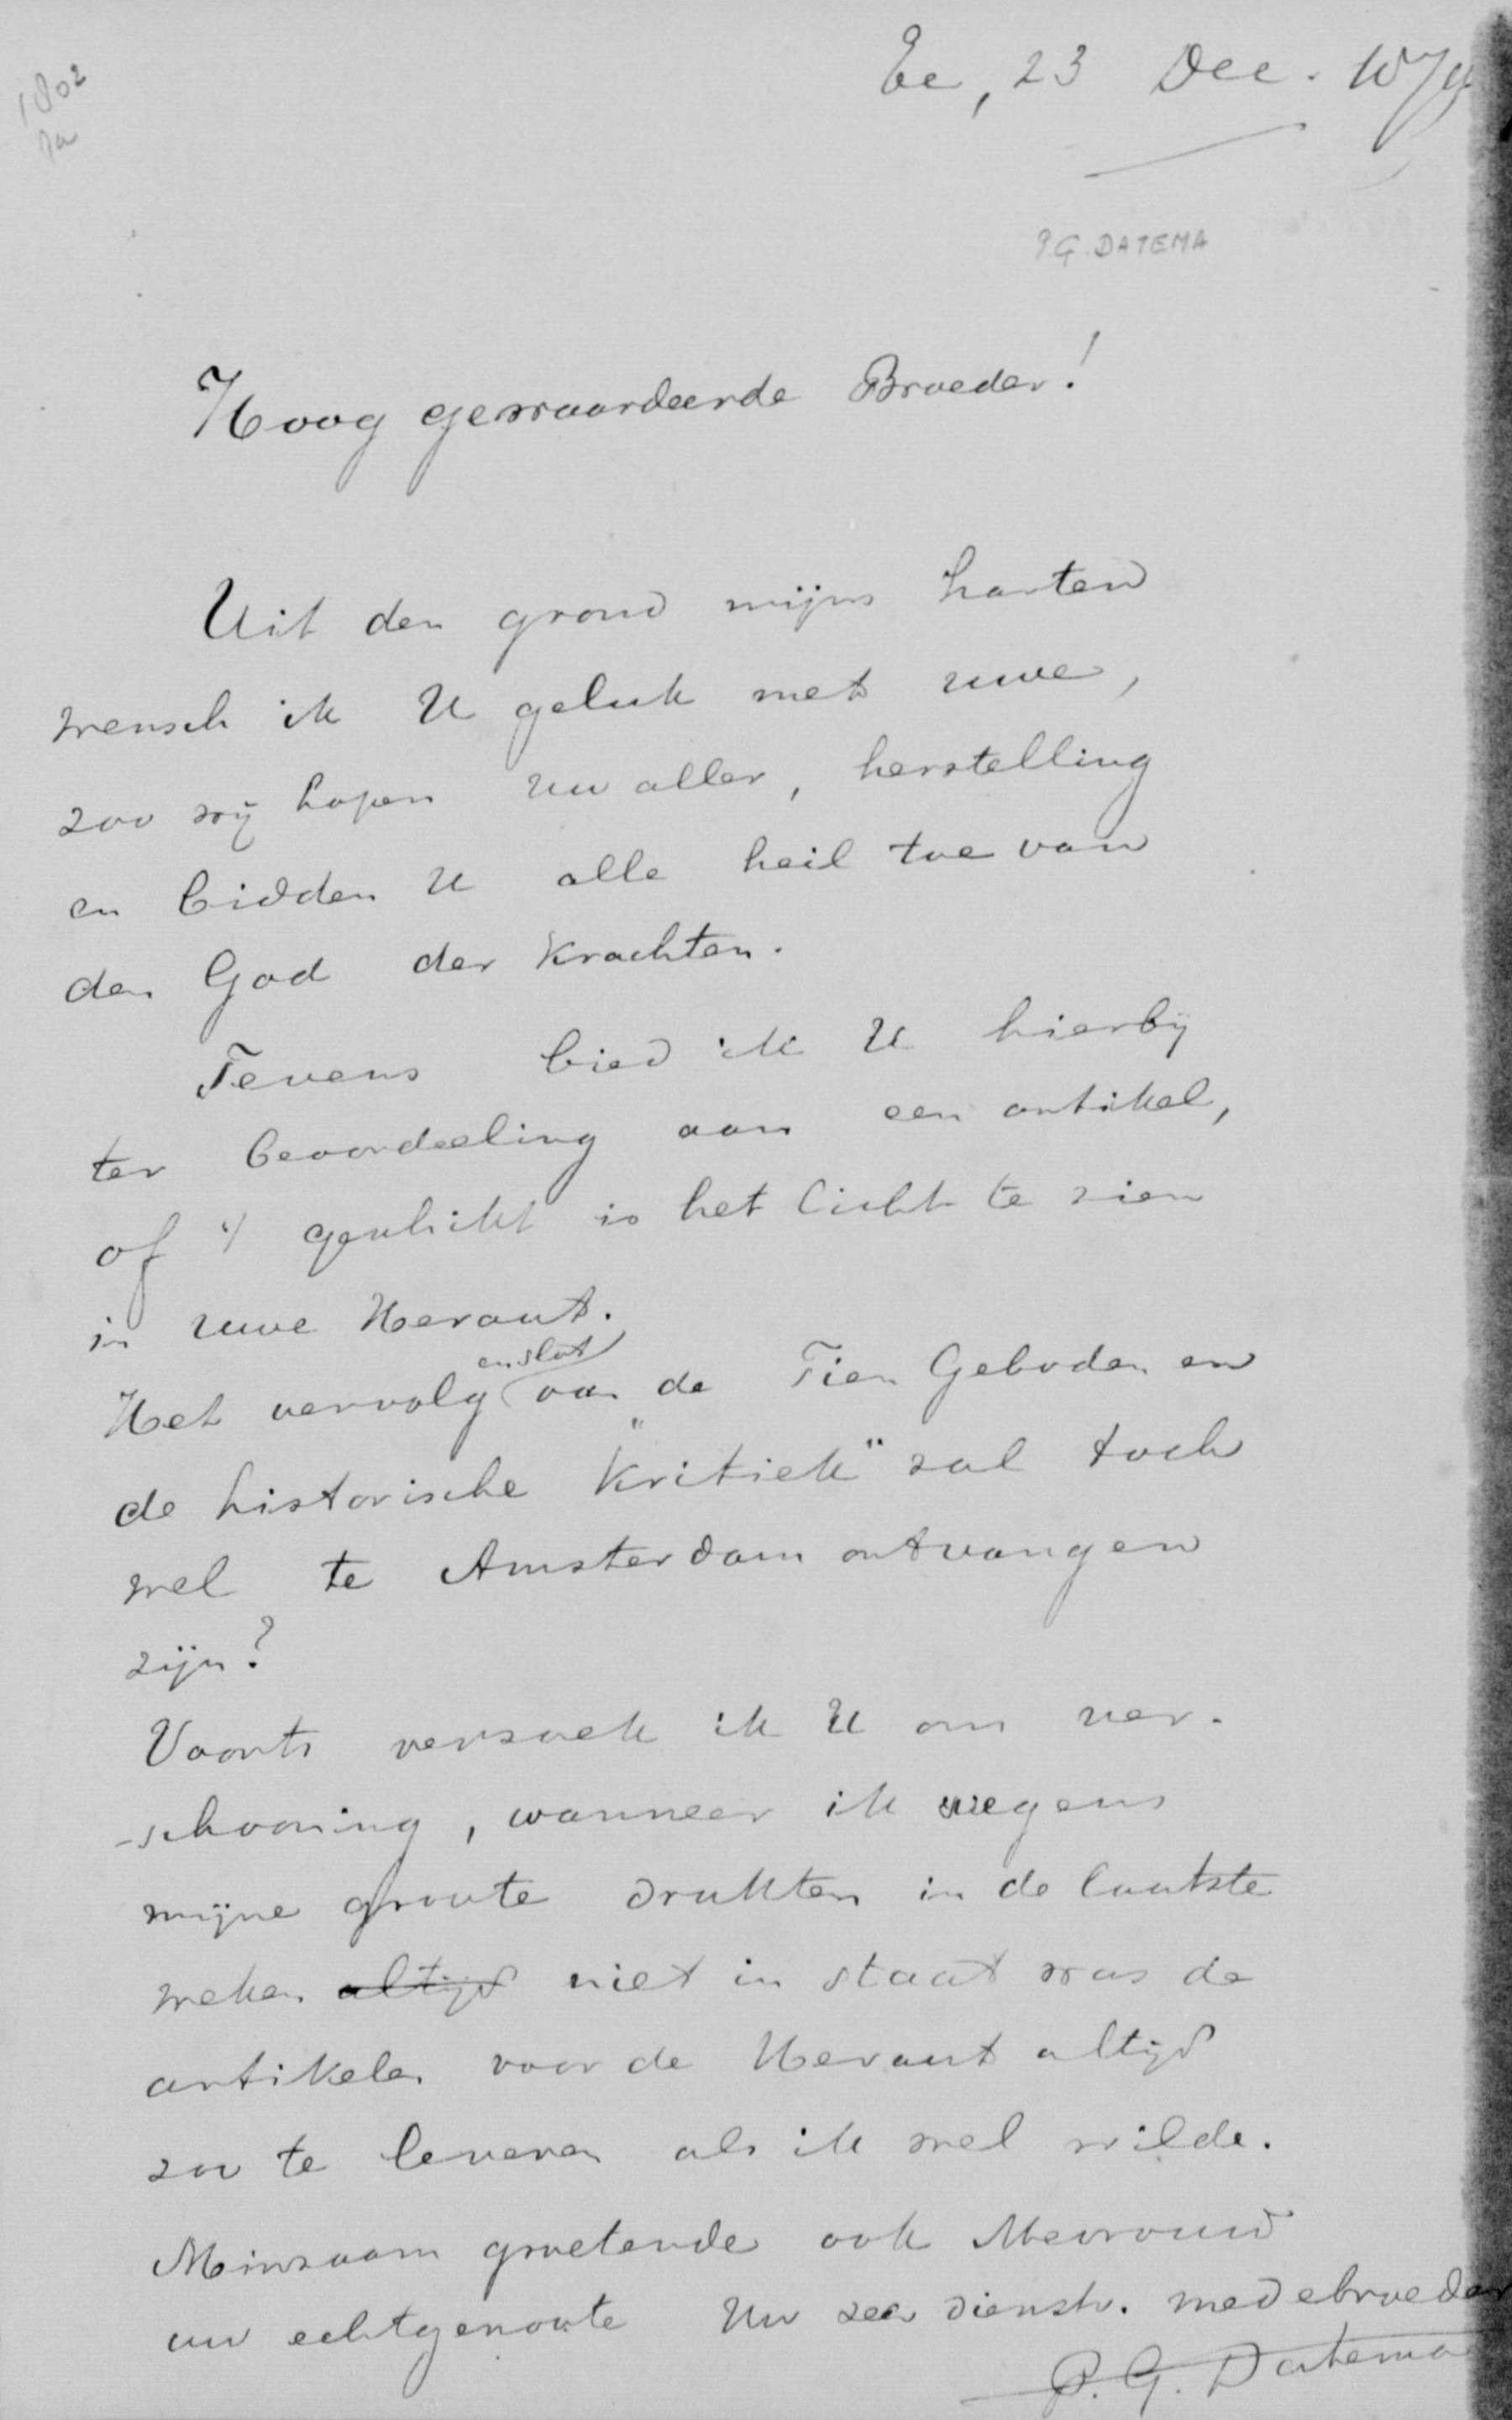 1802
Ee, 23 Dec.
P.G. DATEMA
Hoog gewaardeerde Broeder!
Uit den grond mijns harten
wensch ik U geluk met uwe,
zoo wij hopen uw aller, herstelling
en bidden U alle heil toe van
den God der Krachten.
Tevens bied ik U hierbij
ter beoordeeling aan een artikel,
of 't geschikt is het licht te zien
in uwe Heraut.
en slot
Het vervolg van de Tien Geboden en
de historische "Kritiek" zal toch
wel te Amsterdam ontvangen
zijn?
Voorts verzoek ik U om ver-
-schooning, wanneer ik wegens
mijne groote drukten in de laatste
weken altijd niet in staat was de
artikelen voor de Heraut altijd
zoo te leveren als ik wel wilde.
Minzaam groetende ook Mevrouw
uw echtgenoote Uw zeer dienstv. medebroeder
P. G. Datema